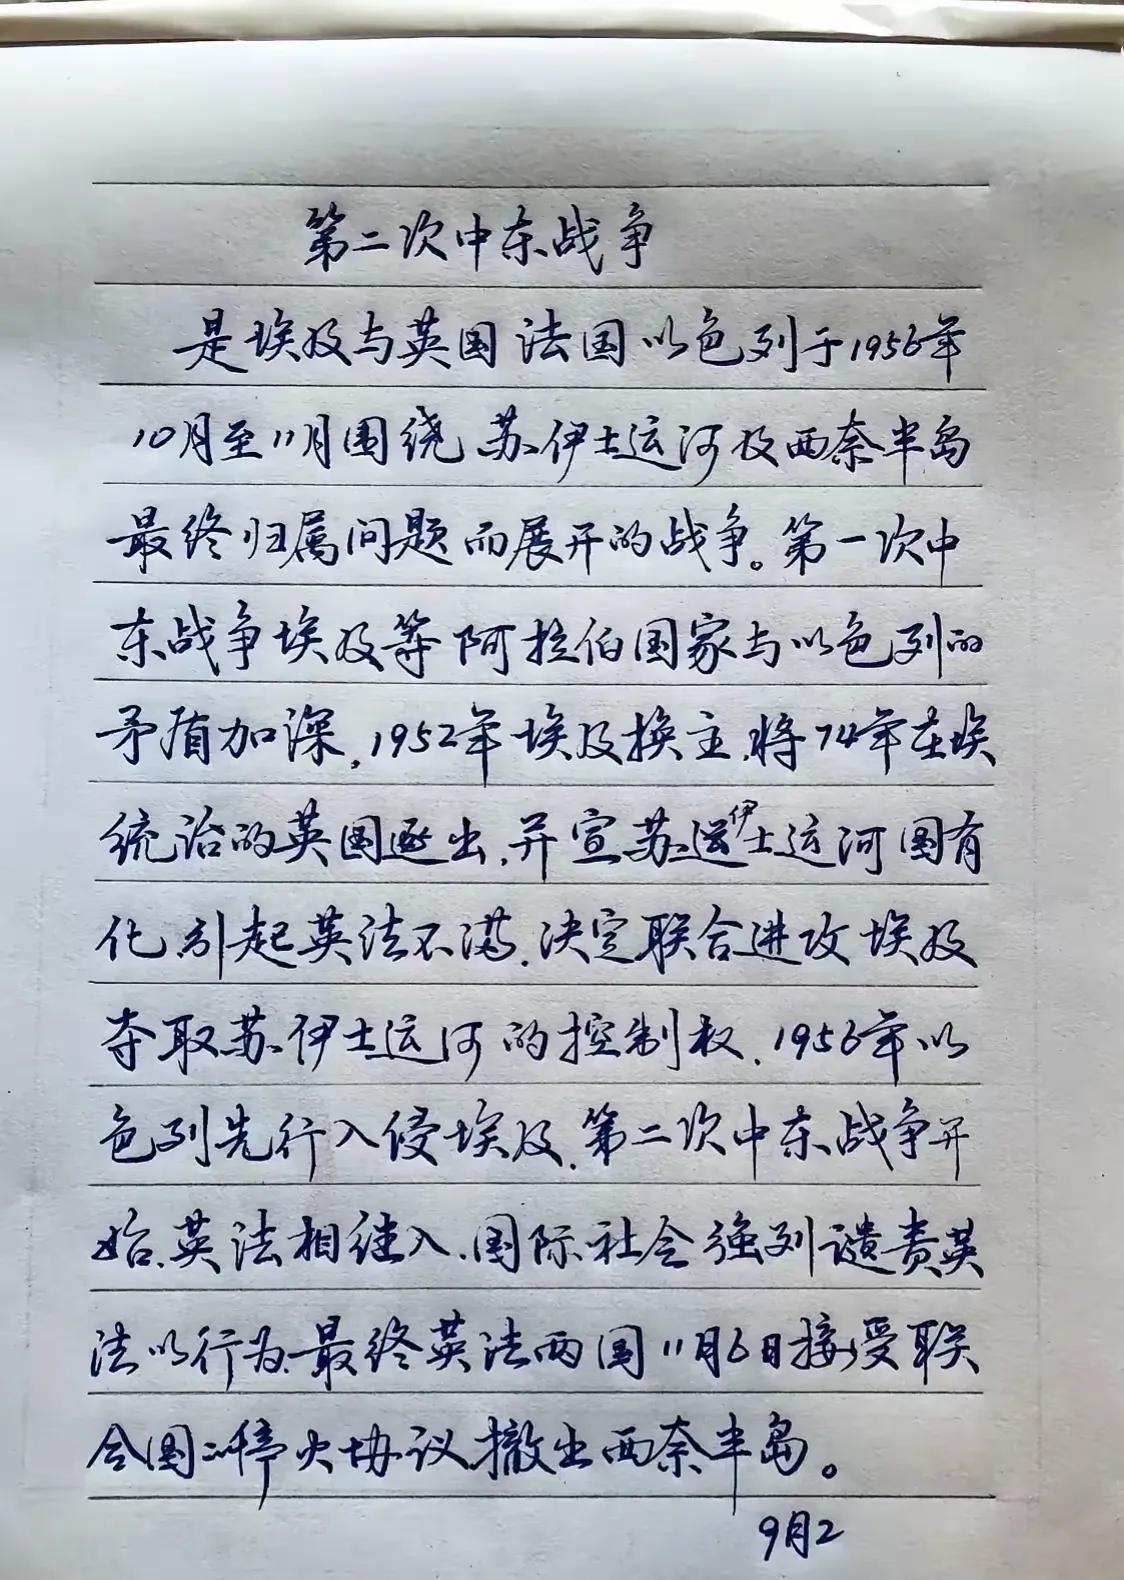 第二次中东战争
是埃及与英国法国以色列于1956年
10月至11月围绕苏伊士运河及西奈半岛
最终归属问题而展开的战争。第一次中
东战争埃及等阿拉伯国家与以色列的
矛盾加深,1952年埃及换主,将74年在埃
统治的英国逐出,并宣苏运伊士运河国有
化,引起英法不满,决定联合进攻埃及
夺取苏伊士运河的控制权,1956年以
色列先行入侵埃及,第二次中东战争开
始,英法相继入,国际社会强列谴责英
法以行为,最终英法两国11月6日接受联
合国停火协议,撤出西奈半岛。
9月2